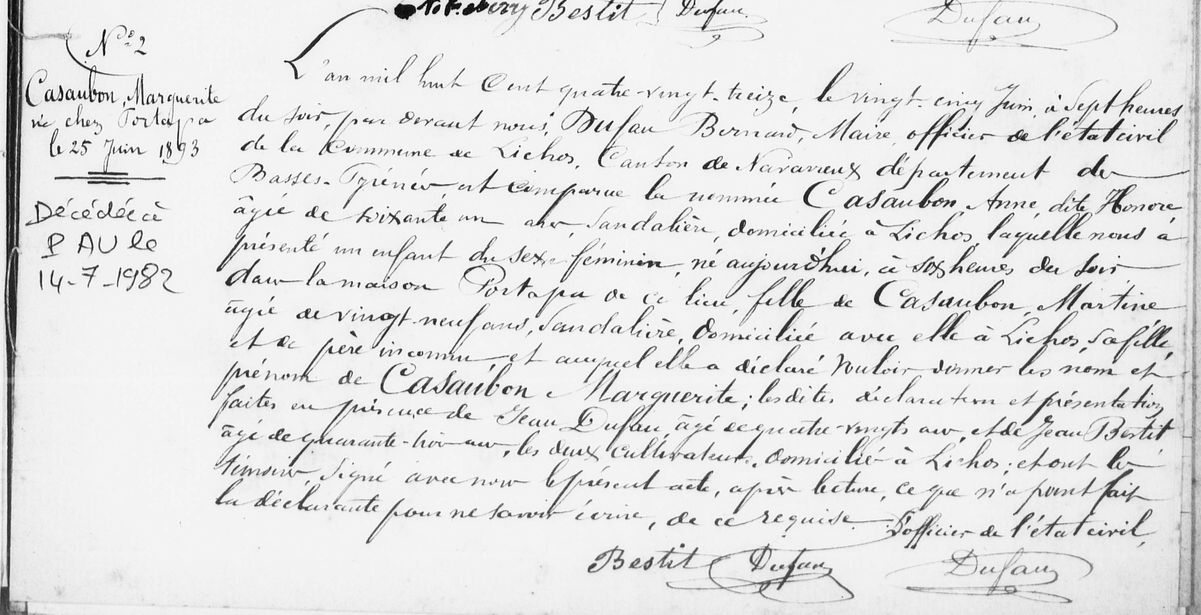 Bestit Dufau Dufau
N° 2
Casaubon, Marguerite
née chez Portapa
le 25 Juin 1893
Décédée à
PAU le
14-7-1982
L'an mil huit Cent quatre-vingt-treize, le vingt-cinq Juin, à Sept heures
du soir, par devant nous, Dufau Bernard, Maire, officier de l'état civil
de la Commune de Lichos, Canton de Navarrenx département des
Basses-Pyrénées est comparue la nommée Casaubon Anne, dite Honoré
âgée de soixante un ans, Sandalière, domiciliée à Lichos, laquelle nous a
présenté un enfant du sexe féminin, né aujourd'hui, à six heures du soir
dans la maison Portapa de ce lieu, fille de Casaubon, Martine
âgée de vingt-neuf ans, Sandalière, domiciliée avec elle à Lichos, sa fille,
et de père inconnu et auquel elle a déclaré vouloir donner les nom et
prénom de Casaubon Marguerite; les dites déclaration et présentation
faites en présence de Jean Dufau âgé de quatre-vingts ans, et de Jean Bestit
âgé de quarante-trois ans, les deux cultivateurs, domiciliés à Lichos; et ont les
témoins signé avec nous le présent acte, après lecture, ce que n'a point fait
la déclarante pour ne savoir écrire, de ce requise. L'officier de l'état civil,
Bestit Dufau Dufau